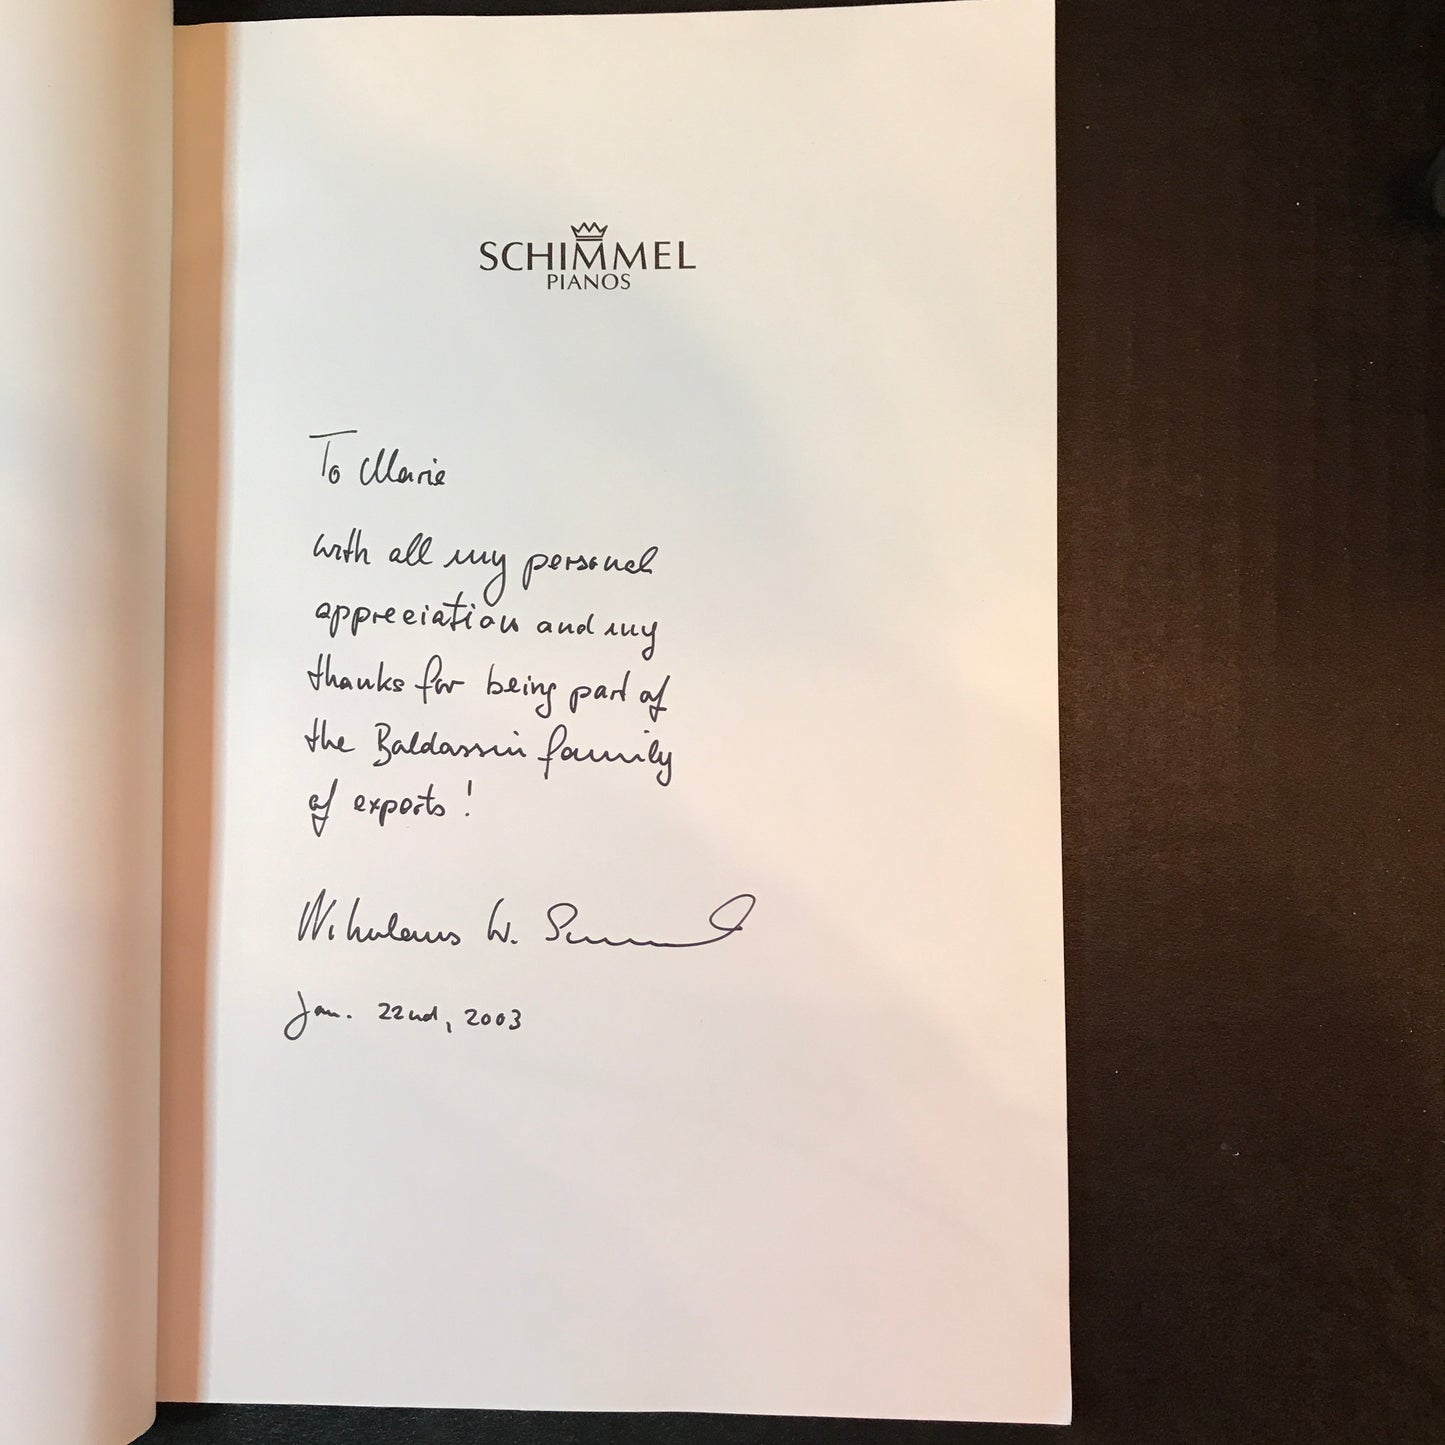 SCHIMMEL
PIANOS
To Marie
with all my personal
appreciation and my
thanks for being part of
the Baldassin family
of experts!
Nikolaus W. Schimmel
Jan. 22nd, 2003